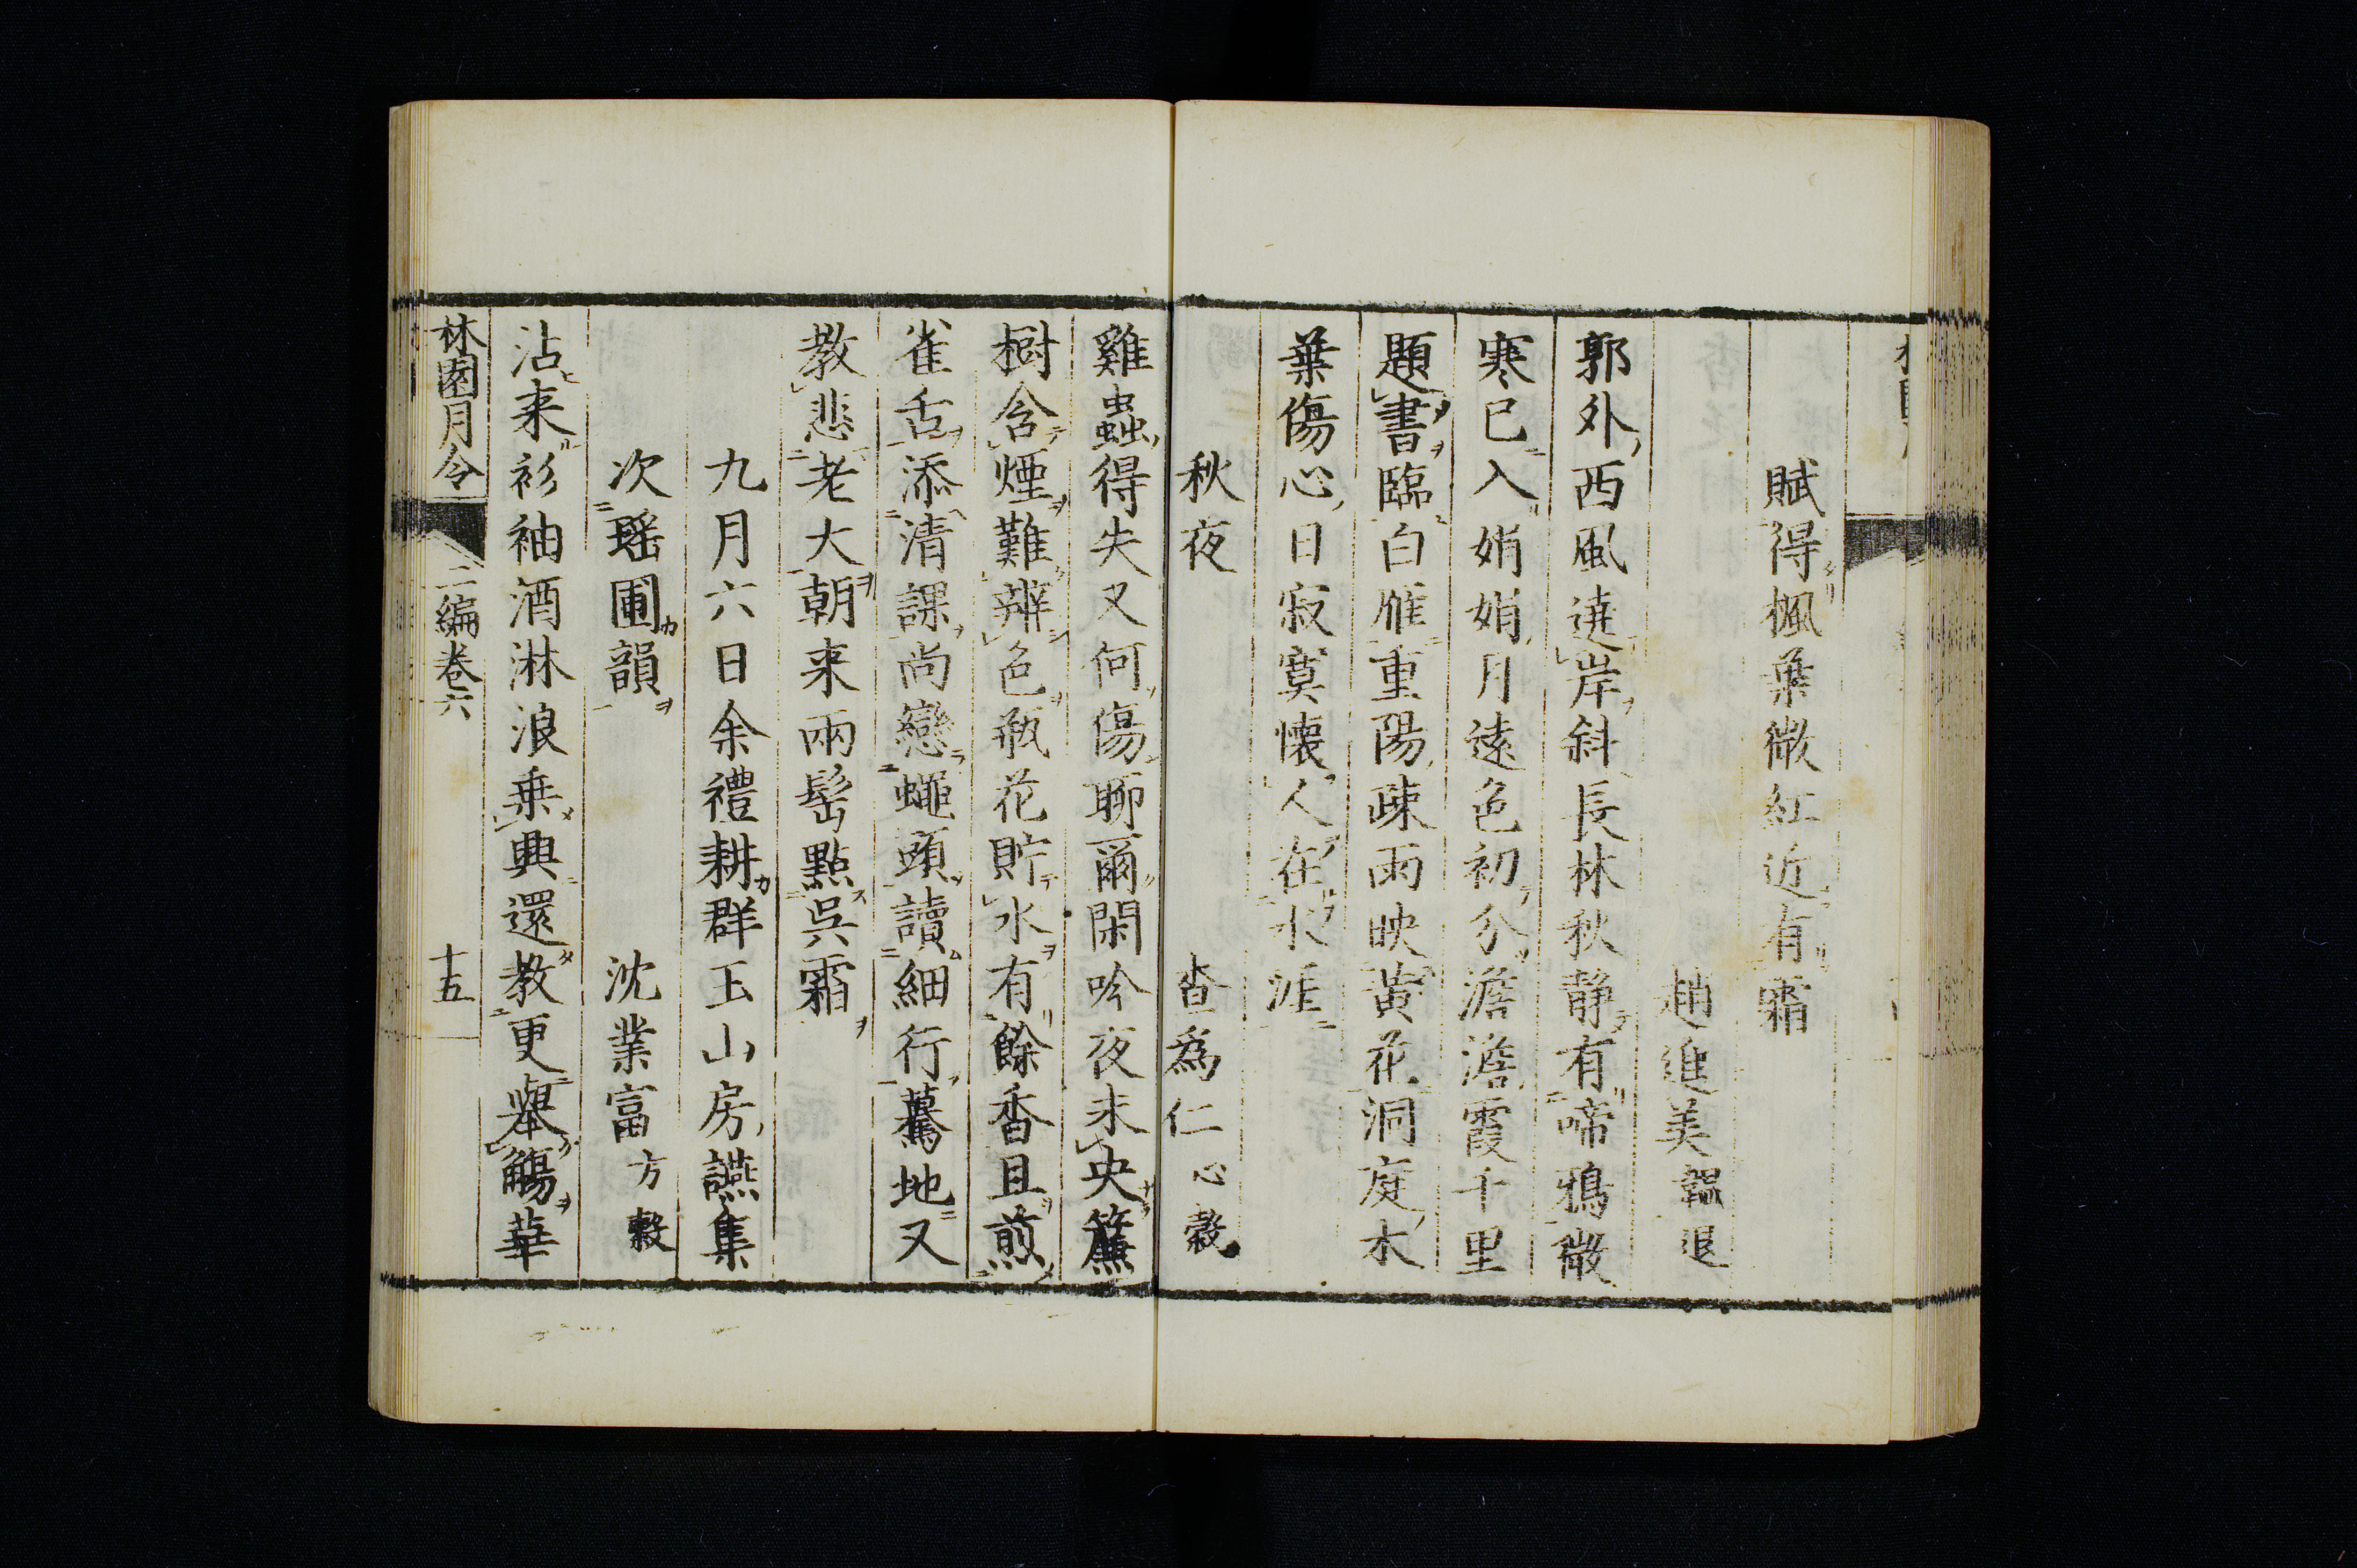 賦得楓葉微紅近有霜
趙進美韞退
郭外西風遶岸斜長林秋静有啼鴉微
寒已入娟娟月遠色初分澹澹霞千里
題書臨白雁重陽疎雨映黄花洞庭木
葉傷心日寂寞懷人在水涯
秋夜
查為仁心穀
雞蟲得失又何傷聊爾閑吟夜未央簾
樹含煙難辨色瓶花貯水有餘香且煎
雀舌添清課尚戀蠅頭讀細行驀地又
教悲老大朝来兩髩點呉霜
九月六日余禮耕群玉山房讌集
次瑶圃韻
沈業富方穀
沾来衫袖酒淋浪乗興還教更舉觴華
林園月令
二編卷六
十五